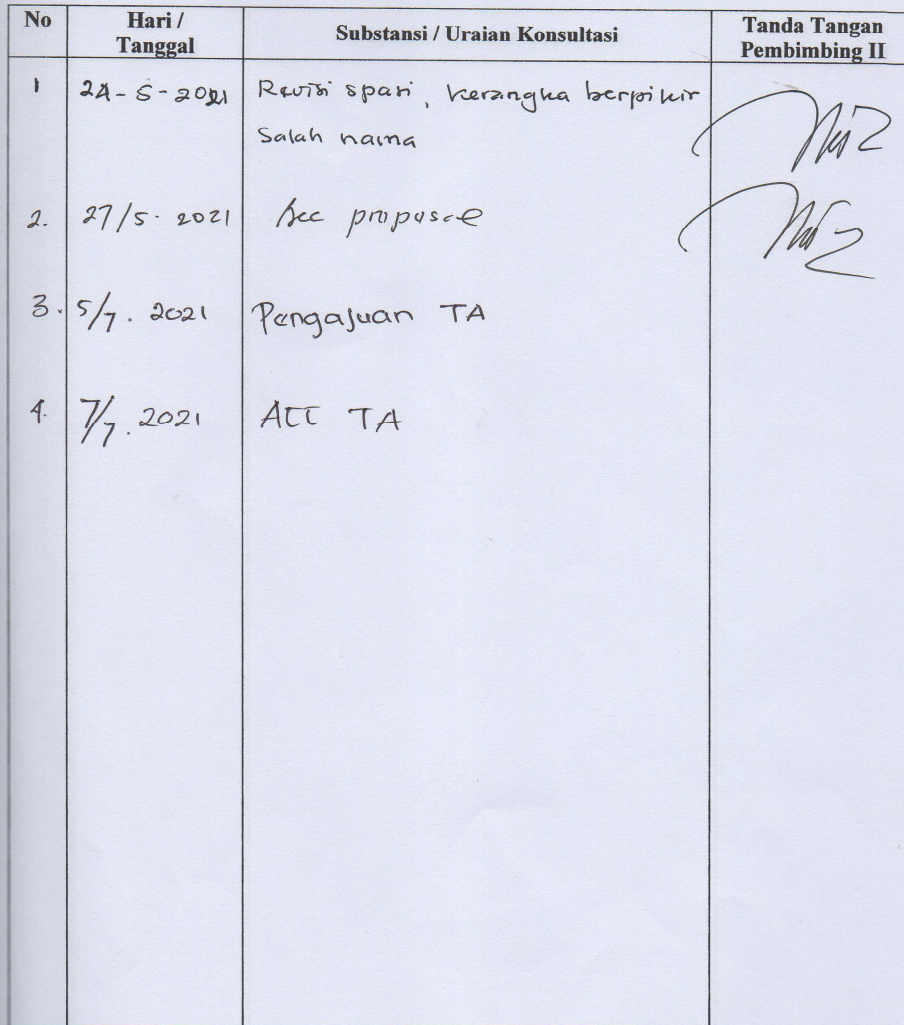 No
Hari /
Tanggal
Substansi / Uraian Konsultasi
Tanda Tangan
Pembimbing II
1
24-5-2021
Revisi spasi, kerangka berpikir
Salah nama
2.
27/5. 2021
Acc proposal
3.
5/7. 2021
Pengajuan TA
4.
7/7. 2021
ACC TA